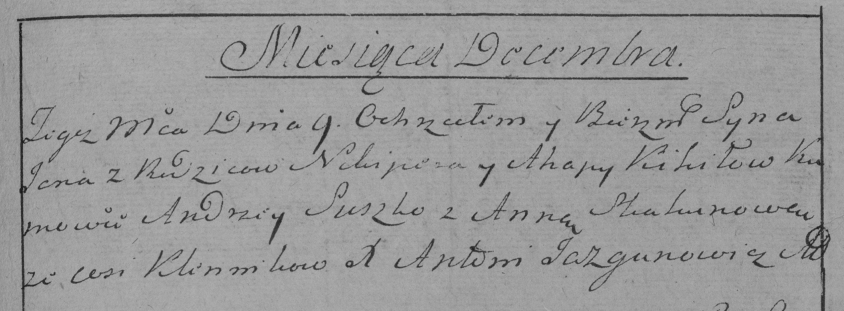 Miesiąca Decembra.
Tegoż Mca Dnia 9. Ochrzciłem y Bierzm Syna
Jana z Rodzicow Nikipera y Ahapy Kikiłow Ku
mowie Andrzey Suszko z Anną Skakunową
ze wsi Klennikow X Antoni Jazgunowicz